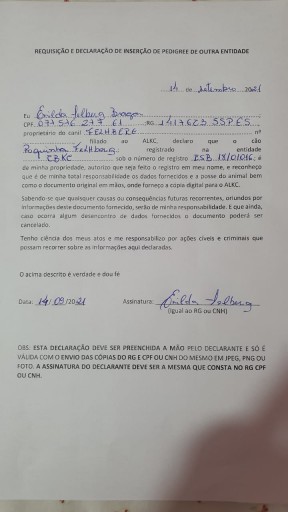 REQUISIÇÃO E DECLARAÇÃO DE INSERÇÃO DE PEDIGREE DE OUTRA ENTIDADE
14 de setembro 2021
Eu Enilda Felberg
CPF RG 1417623 SSPES
proprietário do canil FELHBERG nº
filiado ao ALKC, declaro que o cão
FelHberg registrado na entidade
CBKC sob o número de registro é
de minha propriedade, autorizo que seja feito o registro em meu nome, e reconheço
que é de minha total responsabilidade os dados fornecidos e a posse do animal bem
como o documento original em mãos, onde forneço a cópia digital para o ALKC.
Sabendo-se que quaisquer causas ou consequências futuras recorrentes, oriundos por
informações deste documento fornecido, serão de minha responsabilidade. E que ainda,
caso ocorra algum desencontro de dados fornecidos o documento poderá ser
cancelado.
Tenho ciência dos meus atos e me responsabilizo por ações cíveis e criminais que
possam recorrer sobre as informações aqui declaradas.
O acima descrito é verdade e dou fé
Data: 14/09/2021 Assinatura: Enilda Felberg
(Igual ao RG ou CNH)
OBS: ESTA DECLARAÇÃO DEVE SER PREENCHIDA A MÃO PELO DECLARANTE E SÓ É
VÁLIDA COM O ENVIO DAS CÓPIAS DO RG E CPF OU CNH DO MESMO EM JPEG, PNG OU
FOTO. A ASSINATURA DO DECLARANTE DEVE SER A MESMA QUE CONSTA NO RG CPF
OU CNH.